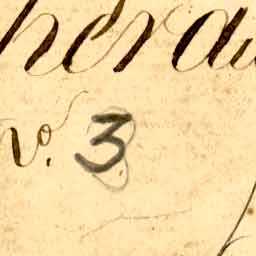 hera
No. 3.